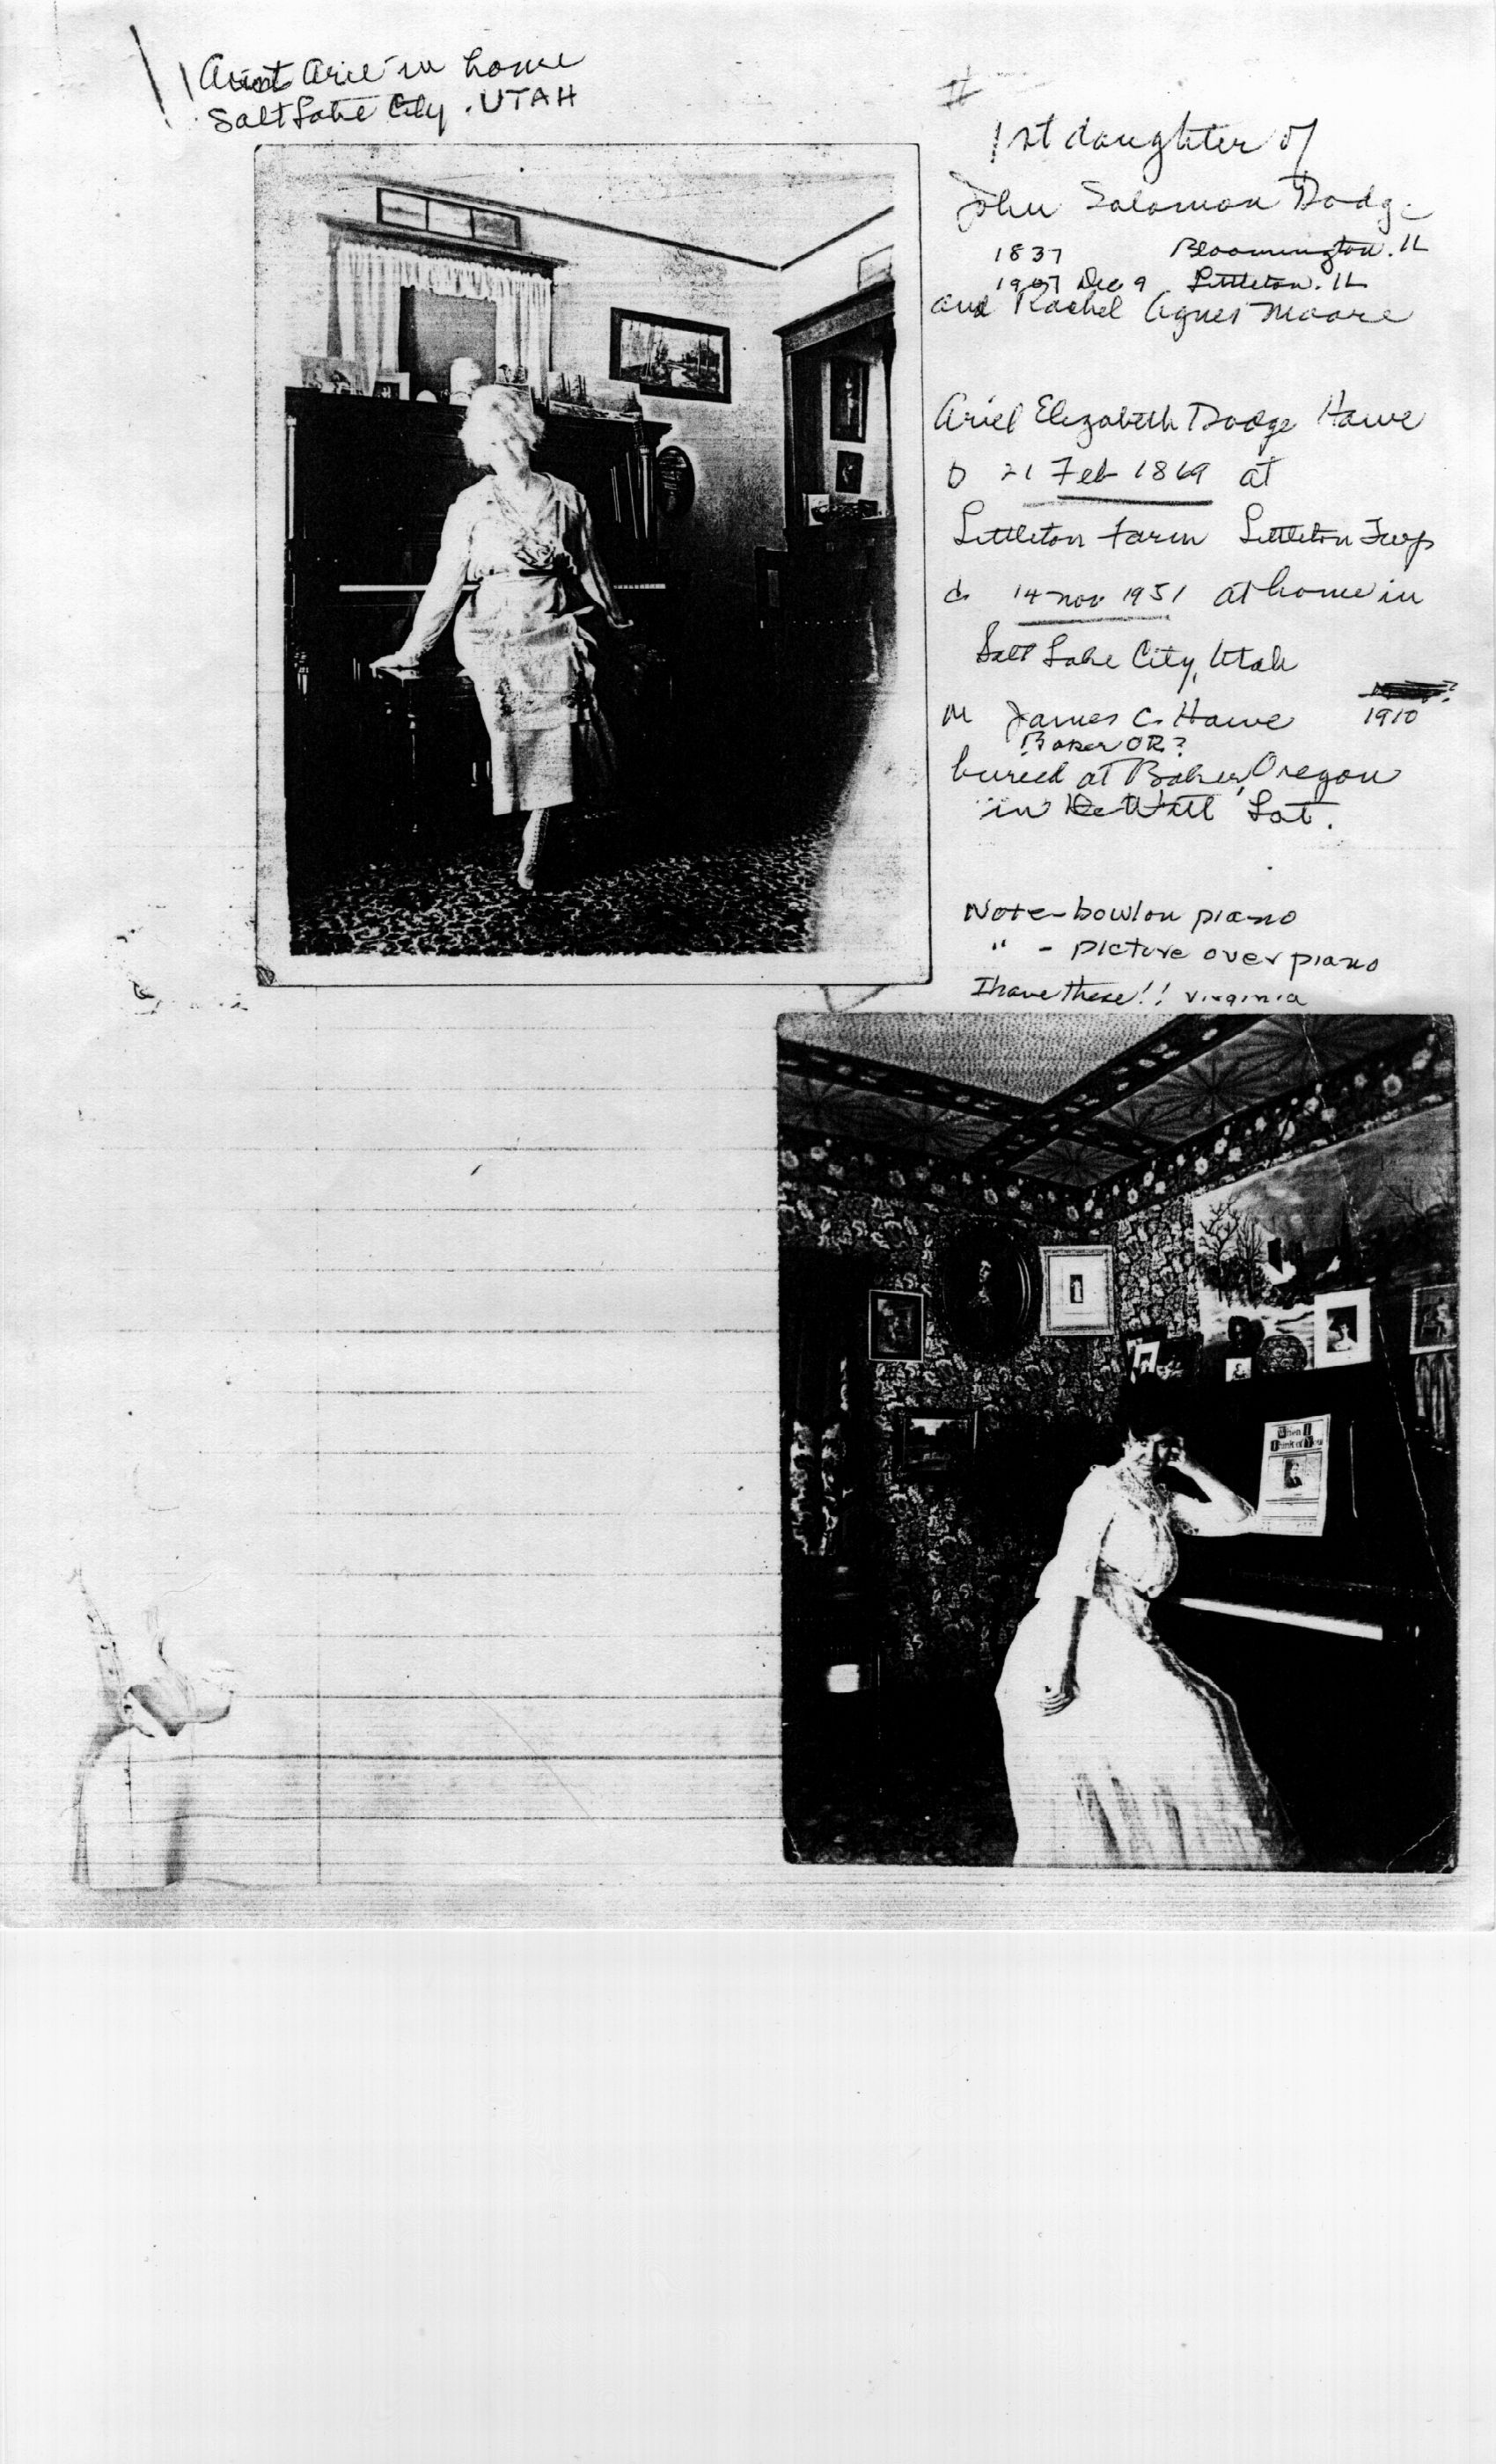 Aunt Arie in home
Salt Lake City. UTAH
1st daughter of
John Solomon Dodge
1837 Bloomington. IL
1907 Dec 9 Littleton. IL
and Rachel Agnes Moore
Ariel Elizabeth Dodge Hawe
b 21 Feb 1869 at
Littleton Farm Littleton Twp
d. 14 Nov 1951 at home in
Salt Lake City, Utah
M James C. Hawe 1910
Baker OR?
buried at Baker, Oregon
in DeWitt Lot.
Note - bowl on piano
" - picture over piano
I have these!! Virginia
When I
Think of You